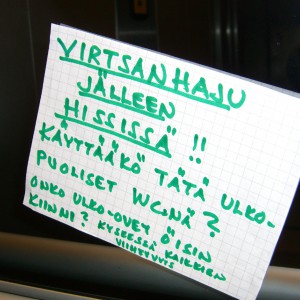 VIRTSANHAJU
JÄLLEEN
HISSISSÄ !!
KÄYTTÄÄKÖ TÄTÄ ULKO-
PUOLISET WC:NÄ?
ONKO ULKO-OVET ÖISIN
KIINNI? KYSEESSÄ KAIKKIEN
VIIHTYVYYS